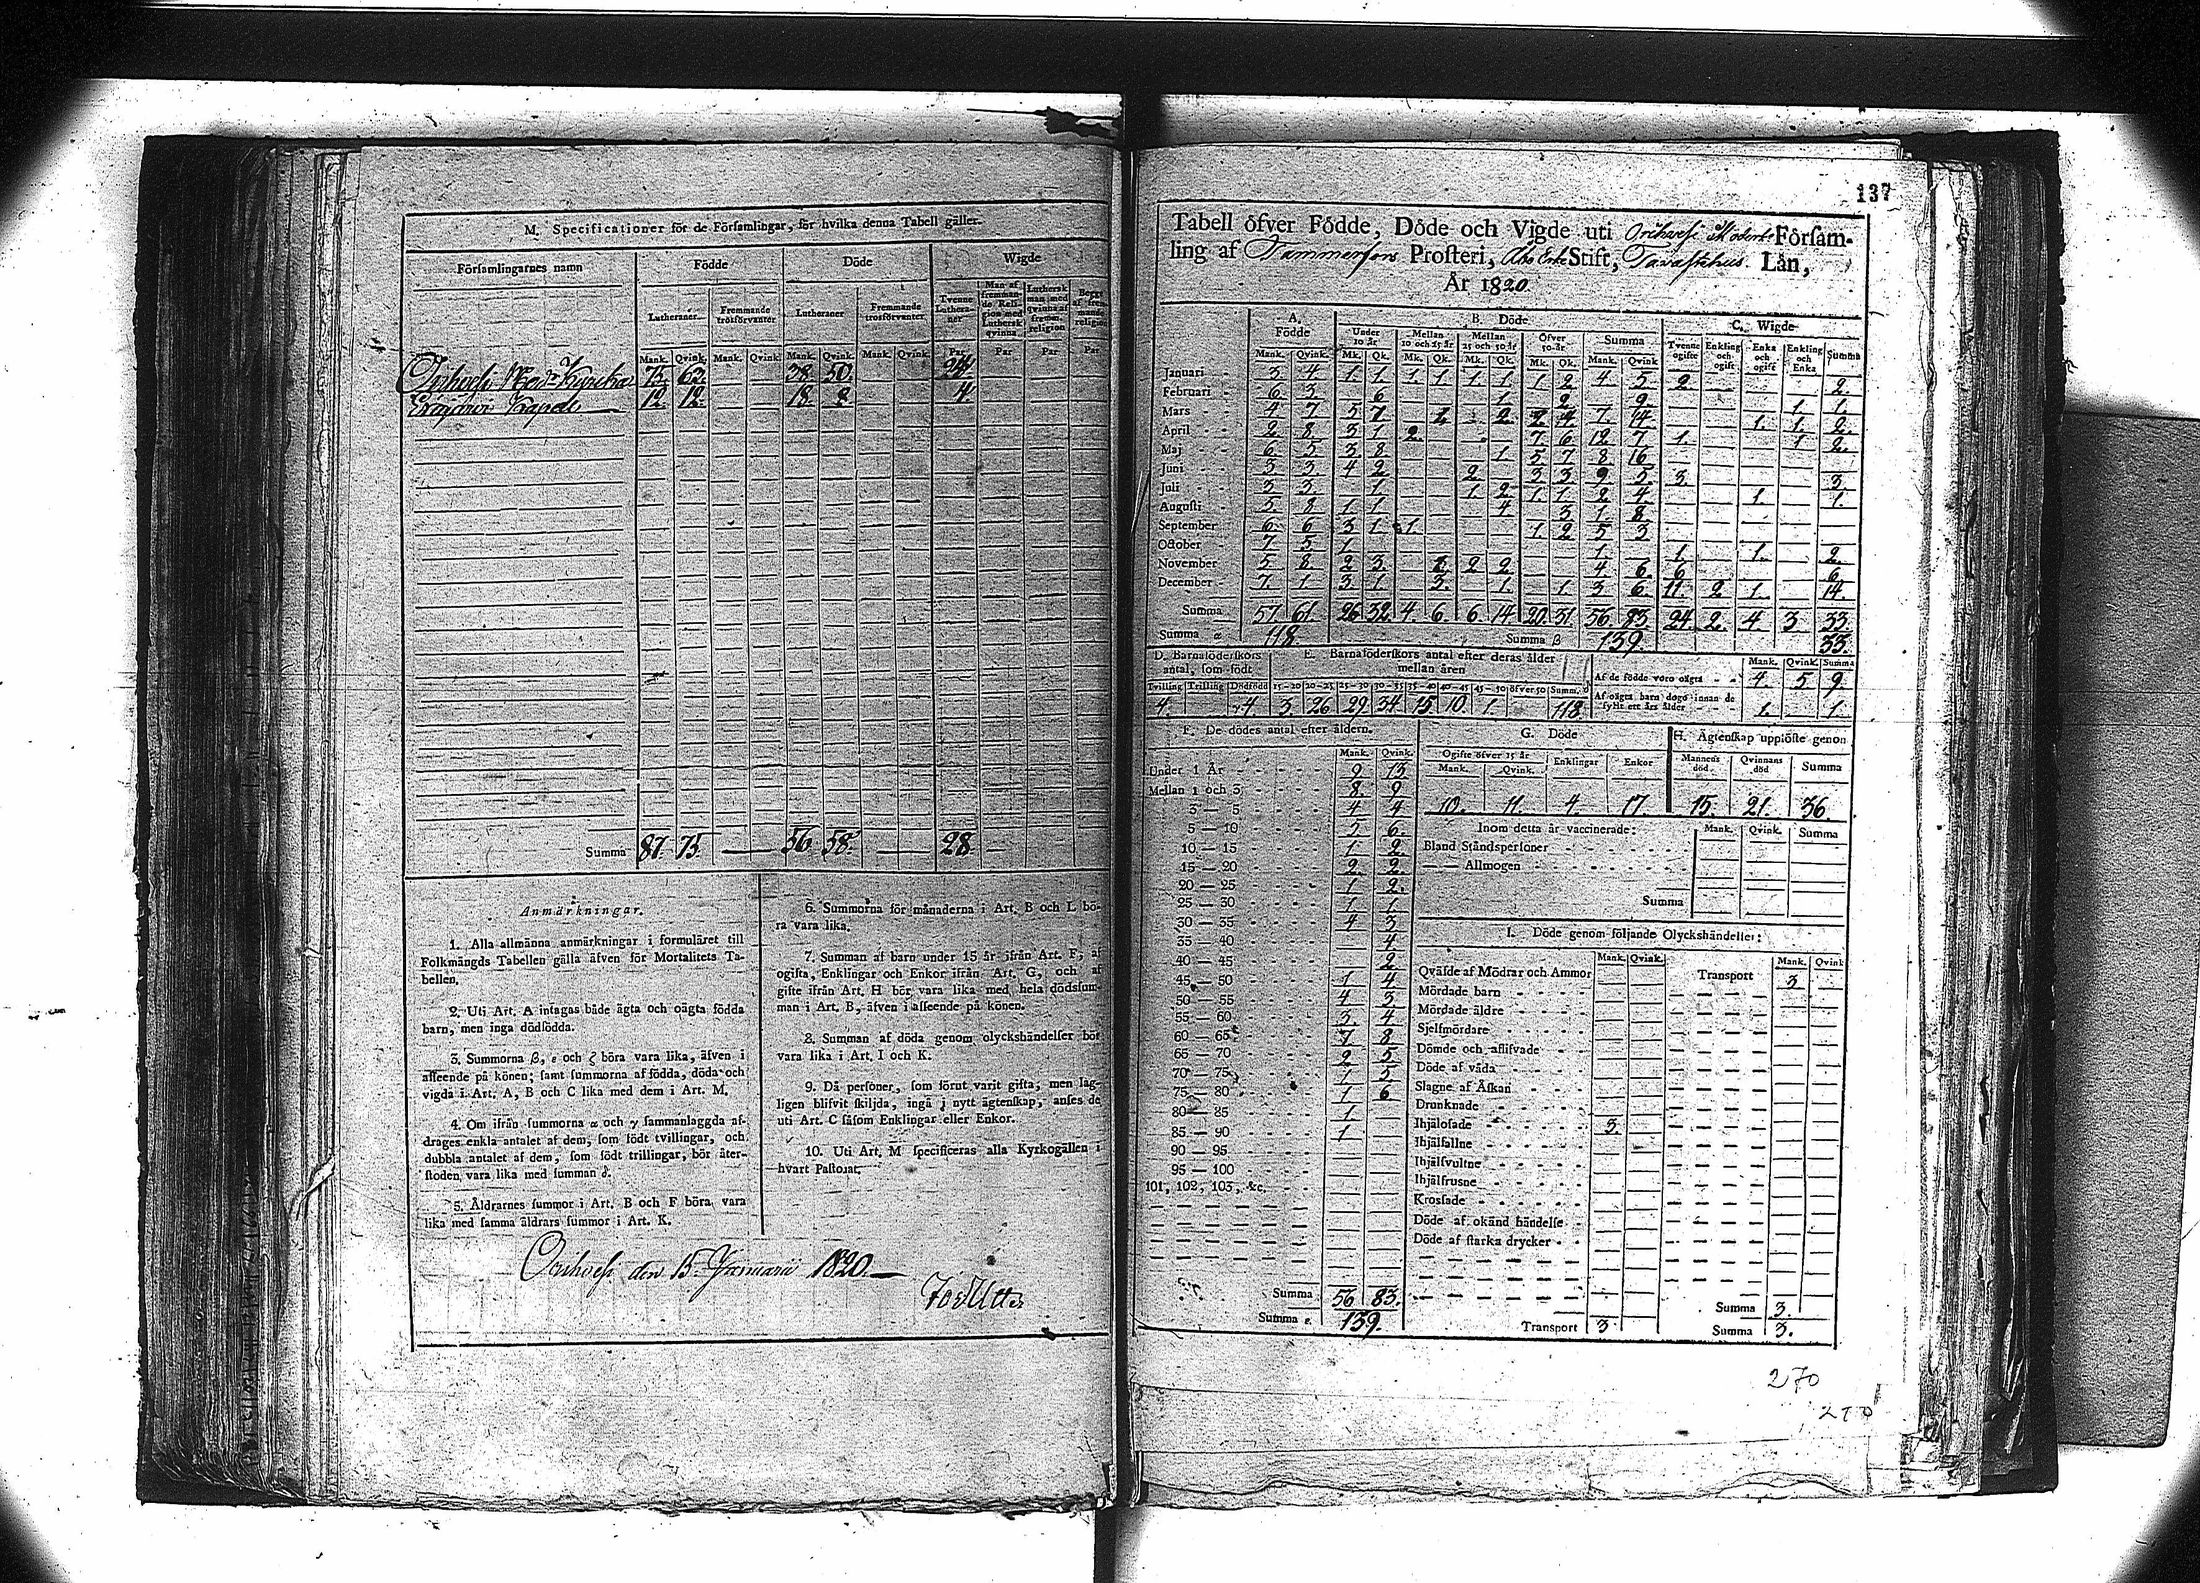 M. Specificationer för de Församlingar, för hvilka denna Tabell gäller.
Församlingarnes namn Födde Döde Wigde
Lutheraner Fremmande trosförvanter Lutheraner Fremmande trosförvanter Tvenne Lutheraner Man af fremmande Religion med Luthersk qvinna Luthersk man med qvinna af fremm. religion
Mank. Qvink. Mank. Qvink. Mank. Qvink. Mank. Qvink. Par Par Par Par
75 63 38 50 24
Kapell 12. 12. 18. 8 4.
Summa 87. 75. 56 58. 28.
Anmärkningar.
1. Alla allmänna anmärkningar i formuläret till
Folkmängds Tabellen gälla äfven för Mortalitets Ta-
bellen.
2. Uti Art. A intagas både ägta och oägta födda
barn, men inga dödfödda.
3. Summorna β, ε och ζ böra vara lika, äfven i
afseende på könen; samt summorna af födda, döda och
vigda i Art. A, B och C lika med dem i Art. M.
4. Om ifrån summorna α och γ sammanlaggda af-
drages enkla antalet af dem, som födt tvillingar, och
dubbla antalet af dem, som födt trillingar, bör åter-
stoden vara lika med summan δ.
5. Åldrarnes summor i Art. B och F böra vara
lika med samma åldrars summor i Art. K.
6. Summorna för månaderna i Art. B och L bö-
ra vara lika.
7. Summan af barn under 15 år ifrån Art. F, af
ogifta, Enklingar och Enkor ifrån Art. G, och af
gifte ifrån Art. H bör vara lika med hela dödssum-
man i Art. B, äfven i afseende på könen.
8. Summan af döda genom olyckshändelser bör
vara lika i Art. I och K.
9. Då personer, som förut varit gifta, men lag-
ligen blifvit skiljda, ingå i nytt ägtenskap, anses de
uti Art. C såsom Enklingar eller Enkor.
10. Uti Art. M specificeras alla Kyrkogällen i
hvart Pastorat.
Orihvesi den 15 Januarii 1820
137
Tabell öfver Födde, Döde och Vigde uti Orihvesi Moderk. Försam-
ling af Tammerfors Prosteri, Åbo Erke Stift, Tavastehus Län,
År 1820
A. Födde B. Döde C. Wigde
Under 10 år Mellan 10 och 25 år Mellan 25 och 50 år Öfver 50 år Summa Tvenne ogifte Enkling och ogift Enka och ogift Enkling och Enka Summa
Mank. Qvink. Mk. Qk. Mk. Qk. Mk. Qk. Mk. Qk. Mank. Qvink
Januari 3 4 1 1 1 1 1 1 1 2 4 5 2 2.
Februari 6 3 6 1 2 9 1 1.
Mars 4 7 5 7 1 2 2 4 7 14 1 1 2.
April 2 8 3 1 2 7 6 12 7 1 1 2.
Maj 6 5 3 8 1 5 7 8 16
Juni 3 3 4 2 2 3 3 9 5 3 3.
Juli 3 3 1 1 2 1 1 2 4 1 1.
Augusti 5 8 1 1 4 3 1 8
September 6 6 3 1 1 1 2 5 3
October 7 5 1 1 1 1 2
November 5 8 2 3 1 2 2 4 6 6 6
December 7 1 3 1 3 1 1 3 6 11 2 1 14.
Summa 57. 61. 26 32. 4. 6. 6. 14 20. 31. 56. 83. 24 2. 4 3 33.
Summa α 118. Summa β 139. 33.
D. Barnaföderskors antal, som födt E. Barnaföderskors antal efter deras ålder mellan åren Mank. Qvink. Summa
Af de födde voro oägta 4. 5 9.
Tvilling Trilling Dödfödd 15-20 20-25 25-30 30-35 35-40 40-45 45-50 öfver 50 Summ. δ
Af oägta barn dogo innan de fyllt ett års ålder 1. 1.
4. 4. 3. 26 29. 34 15 10. 1. 118.
F. De dödes antal efter åldern. Mank. Qvink.
Under 1 År 9 13
Mellan 1 och 3 8. 9
3 — 5 4 4
5 — 10 5 6.
10 — 15 1 2.
15 — 20 2 2.
20 — 25 1 2.
25 — 30 1 1
30 — 35 4 3
35 — 40 4.
40 — 45 2.
45 — 50 1 4
50 — 55 4 3
55 — 60 3 4
60 — 65 7 8
65 — 70 2 5
70 — 75 1 5
75 — 80 1 6
80 — 85 1
85 — 90 1
90 — 95
95 — 100
101, 102, 103, &c.
Summa 56 83.
Summa ε. 139.
G. Döde
Ogifte öfver 15 år Enklingar Enkor
Mank. Qvink.
10. 11. 4. 17.
H. Ägtenskap upplöste genom
Mannens död Qvinnans död Summa
15. 21. 36
Inom detta år vaccinerade: Mank. Qvink. Summa
Bland Ståndspersoner
— — Allmogen
Summa
I. Döde genom följande Olyckshändelser:
Mank. Qvink. Mank. Qvink
Qväfde af Mödrar och Ammor Transport 3
Mördade barn
Mördade äldre
Sjelfmördare
Dömde och aflifvade
Döde af våda
Slagne af Åskan
Drunknade
Ihjälösade 3.
Ihjälfallne
Ihjälsvultne
Ihjälfrusne
Krossade
Döde af okänd händelse
Döde af starka drycker
Summa 3.
Transport 3 Summa 3.
270
270